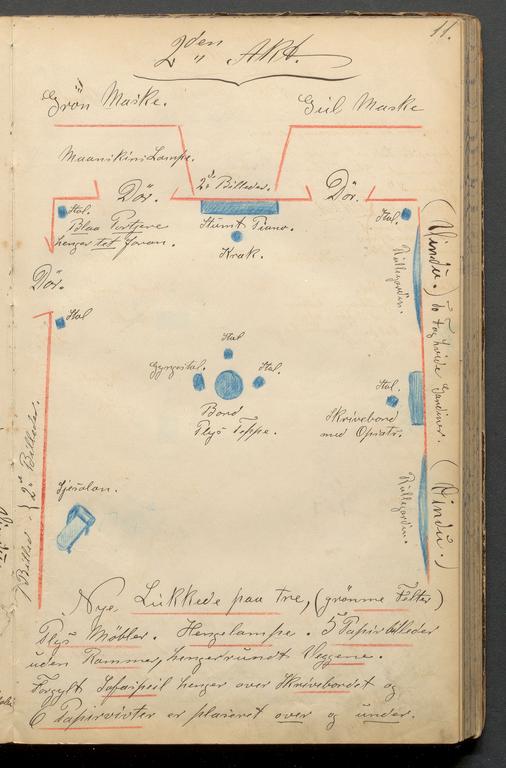 11.
2den Akt.
Grön Maske.
Gul Maske
Maanskins Lampe.
Dör.
2de Billeder.
Dör.
Stol.
Blaa Portjere
henger tet foran.
Stumt Piano.
Krak.
Stol.
(Vindu.)
Rullegardin.
Dör.
Stol
Stol
Gyngestol.
Stol.
Bord
Plys Teppe.
Stol
Skrivebord
med Opsats.
hvide Gardiner.
(Vindu.)
Rullegardin.
2de Billeder.
Nye Lukkede paa tre, (grönne Felter)
Plys Möbler. Hengelampe. 5 Papirbilleder
uden Rammer, henger rundt Veggene.
Forgylt Sofaspeil henger over Skrivebordet og
6 Papirvivter er plaseret over og under.